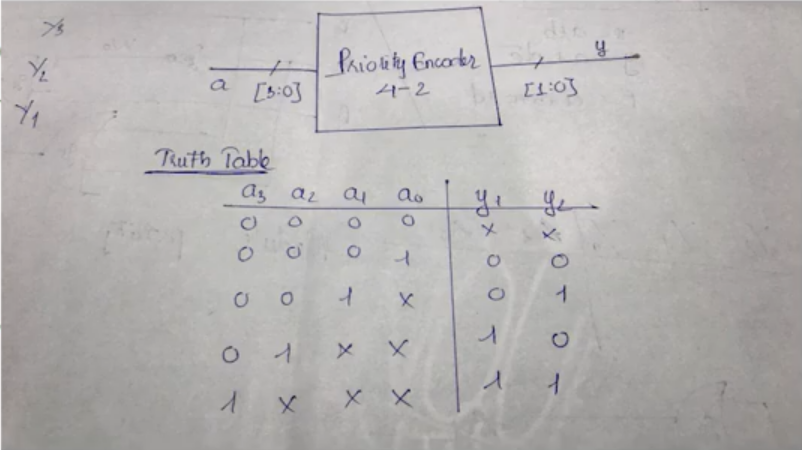 Y3
Y2
Y1
a [3:0] Priority Encoder 4-2 y [1:0]
Truth Table
a3 a2 a1 a0 y1 y2
0 0 0 0 x x
0 0 0 1 0 0
0 0 1 x 0 1
0 1 x x 1 0
1 x x x 1 1